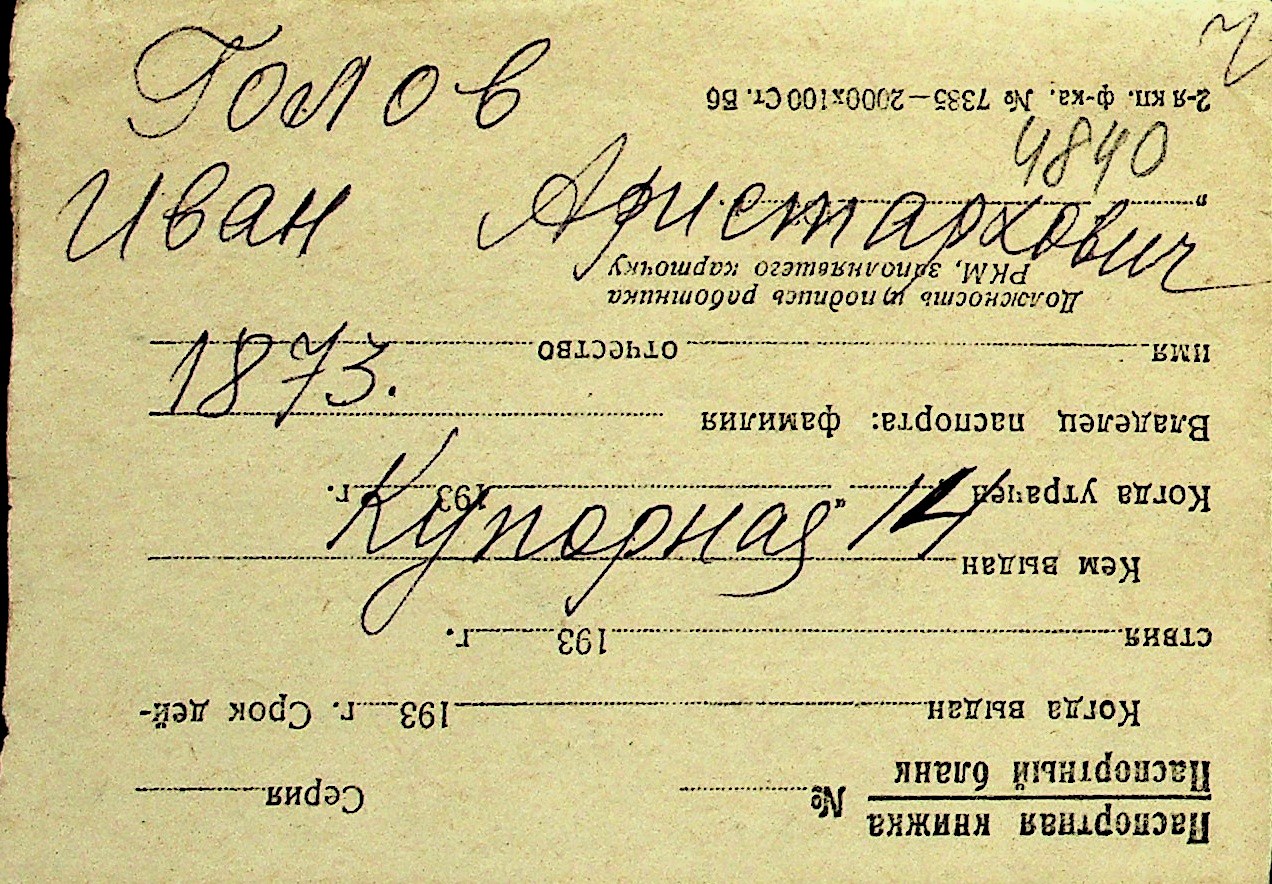 Голов
Иван Аристархович
1873.
Купорная 14
4840
Паспортная книжка
Паспортный бланк
№ Серия
Когда выдан 193 г. Срок дей-
ствия 193 г.
Кем выдан
Когда утрачен „ “ 193 г.
Владелец паспорта: фамилия
имя отчество
Должность и подпись работника
РКМ, заполнявшего карточку
„
2-я кп. ф-ка. № 7385—2000х100 Ст. Вб